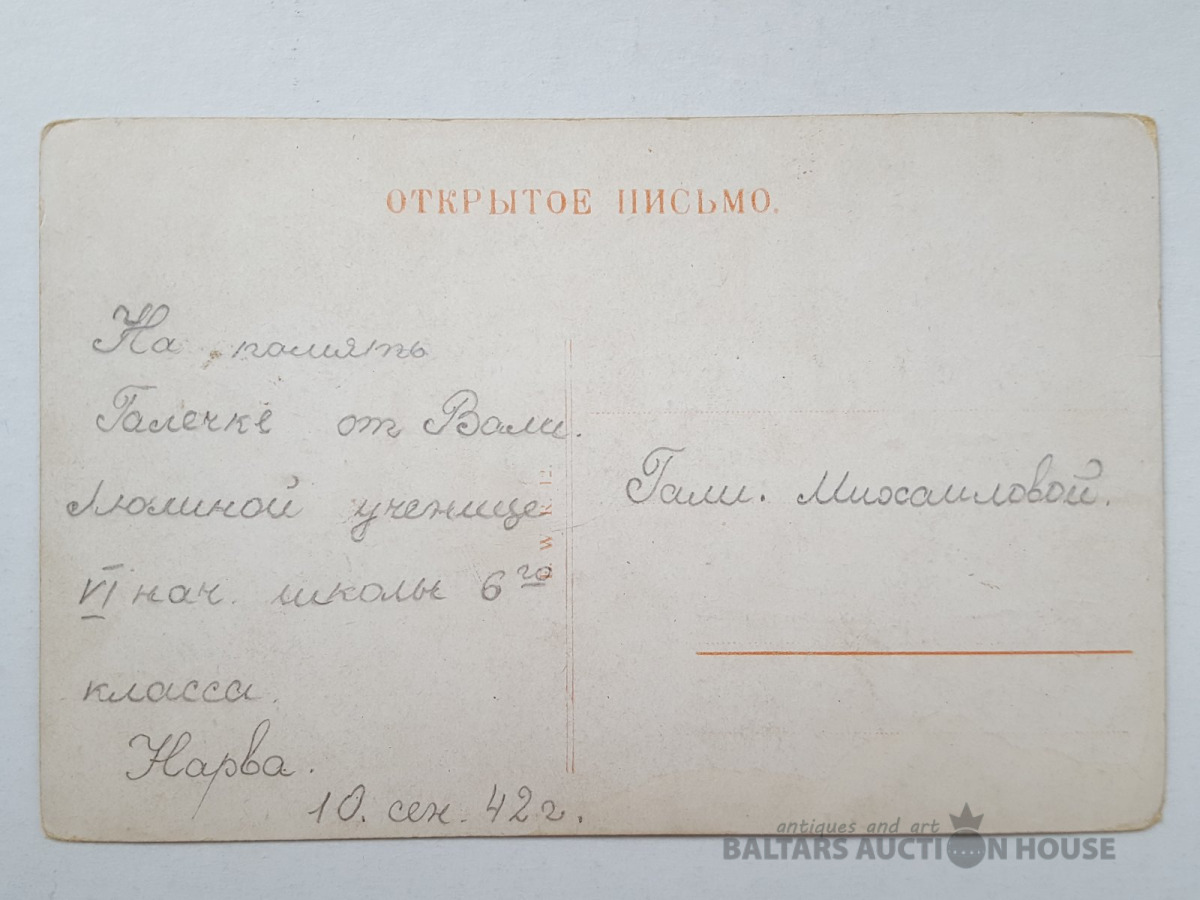 ОТКРЫТОЕ ПИСЬМО.
На память
Галечке от Вали.
Люлиной ученице
VI нач. школы 6го
класса.
Нарва.
10. сен. 42 г.
Гали. Михаиловой.
antiques and art
BALTARS AUCTION HOUSE